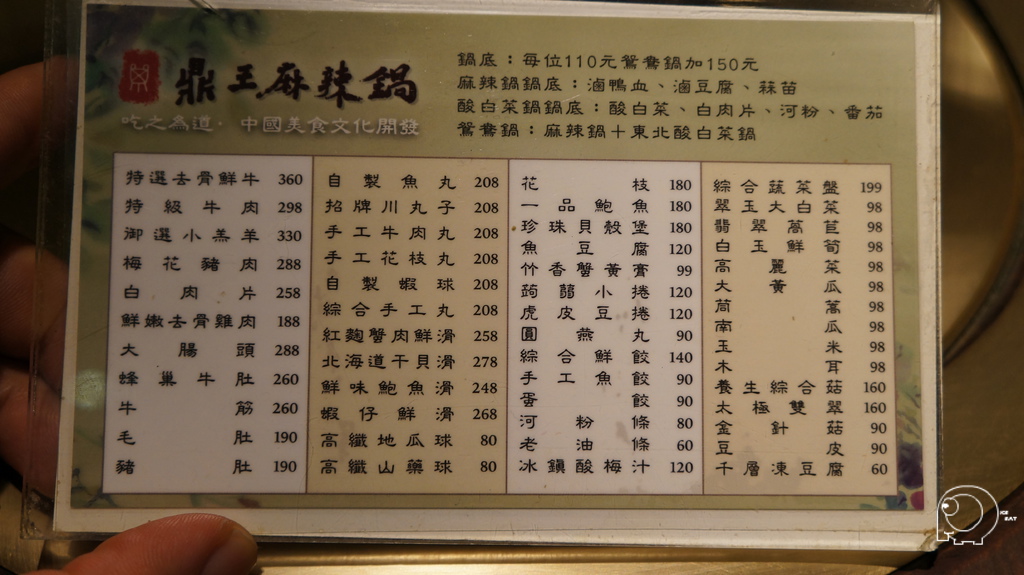 鼎王麻辣鍋
吃之為道·中國美食文化開發
鍋底：每位110元鴛鴦鍋加150元
麻辣鍋鍋底：滷鴨血、滷豆腐、蒜苗
酸白菜鍋鍋底：酸白菜、白肉片、河粉、番茄
鴛鴦鍋：麻辣鍋＋東北酸白菜鍋
特選去骨鮮牛 360
特級牛肉 298
御選小羔羊 330
梅花豬肉 288
白肉片 258
鮮嫩去骨雞肉 188
大腸頭 288
蜂巢牛肚 260
牛筋 260
毛肚 190
豬肚 190
自製魚丸 208
招牌川丸子 208
手工牛肉丸 208
手工花枝丸 208
自製蝦球 208
綜合手工丸 208
紅麴蟹肉鮮滑 258
北海道干貝滑 278
鮮味鮑魚滑 248
蝦仔鮮滑 268
高纖地瓜球 80
高纖山藥球 80
花枝 180
一品鮑魚 180
珍珠貝殼堡 180
魚豆腐 120
竹香蟹黃膏 99
蒟蒻小捲 120
虎皮豆捲 120
圓燕丸 90
綜合鮮餃 140
手工魚餃 90
蛋餃 90
河粉條 80
老油條 60
冰鎮酸梅汁 120
綜合蔬菜盤 199
翠玉大白菜 98
翡翠萵苣 98
白玉鮮筍 98
高麗菜 98
大黃瓜 98
茼蒿 98
南瓜 98
玉米 98
木耳 98
養生綜合菇 160
太極雙翠 160
金針菇 90
豆皮 90
千層凍豆腐 60
ICE
EAT